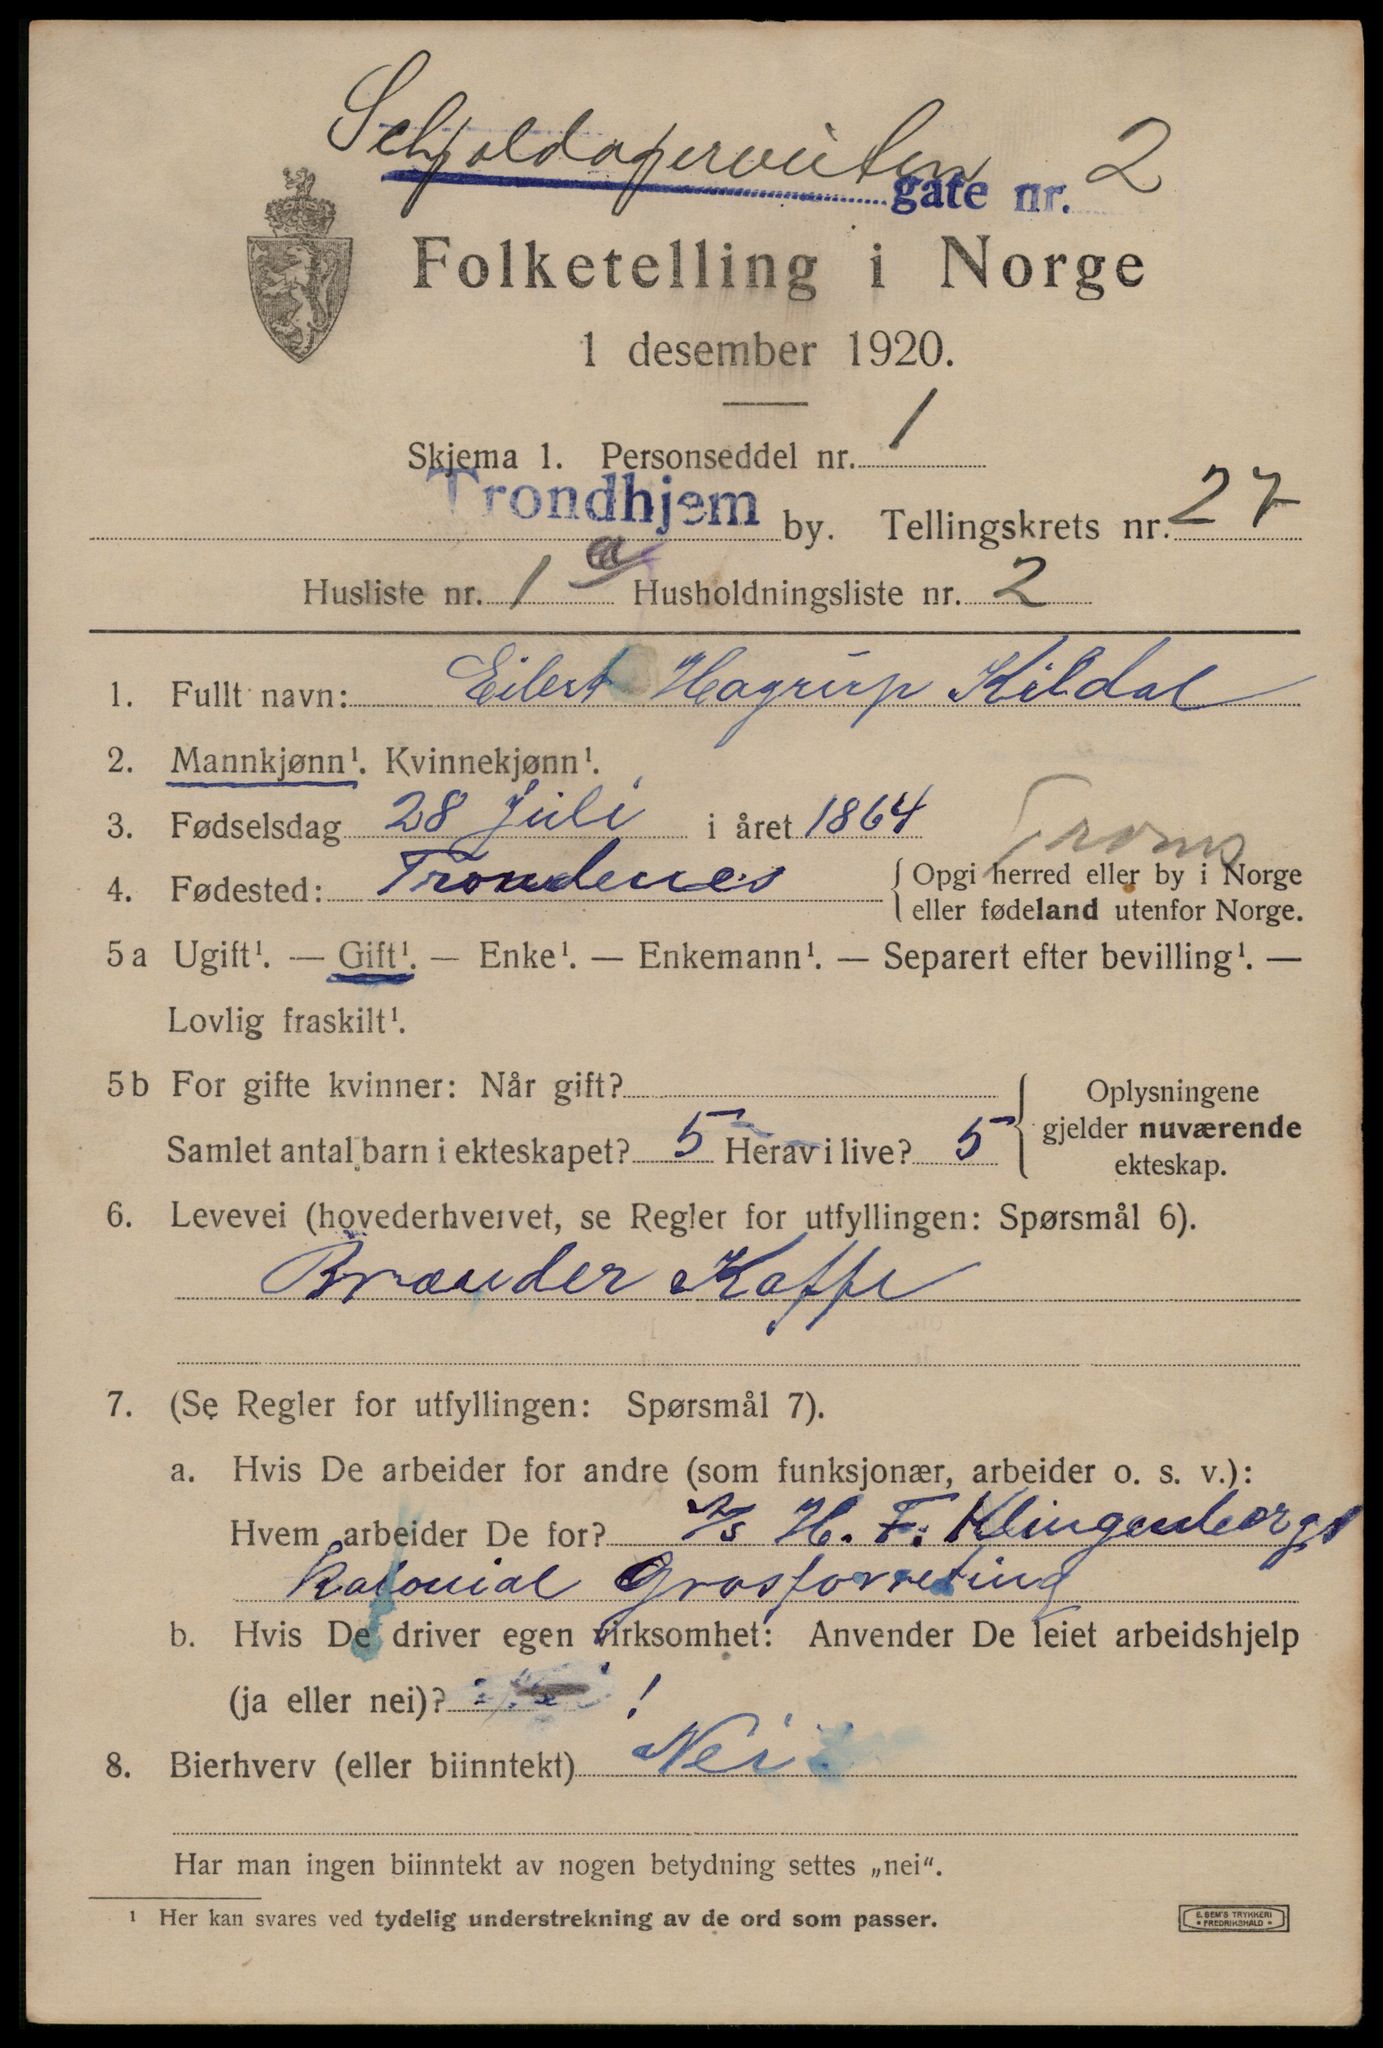 Schjoldagerveiten gate nr. 2
Folketelling i Norge
1 desember 1920.
Skjema 1. Personseddel nr. 1
Trondhjem by. Tellingskrets nr. 27
Husliste nr. 1 a Husholdningsliste nr. 2
1. Fullt navn: Eilert Hagrup Kildal
2. Mannkjønn¹. Kvinnekjønn¹.
3. Fødselsdag 28 Juli i året 1864
Troms
4. Fødested: Trondenes { Opgi herred eller by i Norge
eller fødeland utenfor Norge.
5 a Ugift¹. — Gift¹. — Enke¹. — Enkemann¹. — Separert efter bevilling¹. —
Lovlig fraskilt¹.
5 b For gifte kvinner: Når gift? { Oplysningene
gjelder nuværende
Samlet antal barn i ekteskapet? 5 Herav i live? 5
ekteskap.
6. Levevei (hovederhvervet, se Regler for utfyllingen: Spørsmål 6).
Brænder Kaffe
7. (Se Regler for utfyllingen: Spørsmål 7).
a. Hvis De arbeider for andre (som funksjonær, arbeider o. s. v.):
Hvem arbeider De for? A/s H. F. Klingenbergs
kolonial Grosforreting
b. Hvis De driver egen virksomhet: Anvender De leiet arbeidshjelp
(ja eller nei)? !
8. Bierhverv (eller biinntekt) Nei
Har man ingen biinntekt av nogen betydning settes „nei“.
¹ Her kan svares ved tydelig understrekning av de ord som passer.
E. SEM'S TRYKKERI
FREDRIKSHALD